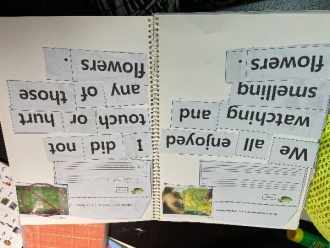 We all enjoyed
watching and
smelling
flowers .
I did not
touch or hurt
any of those
flowers .